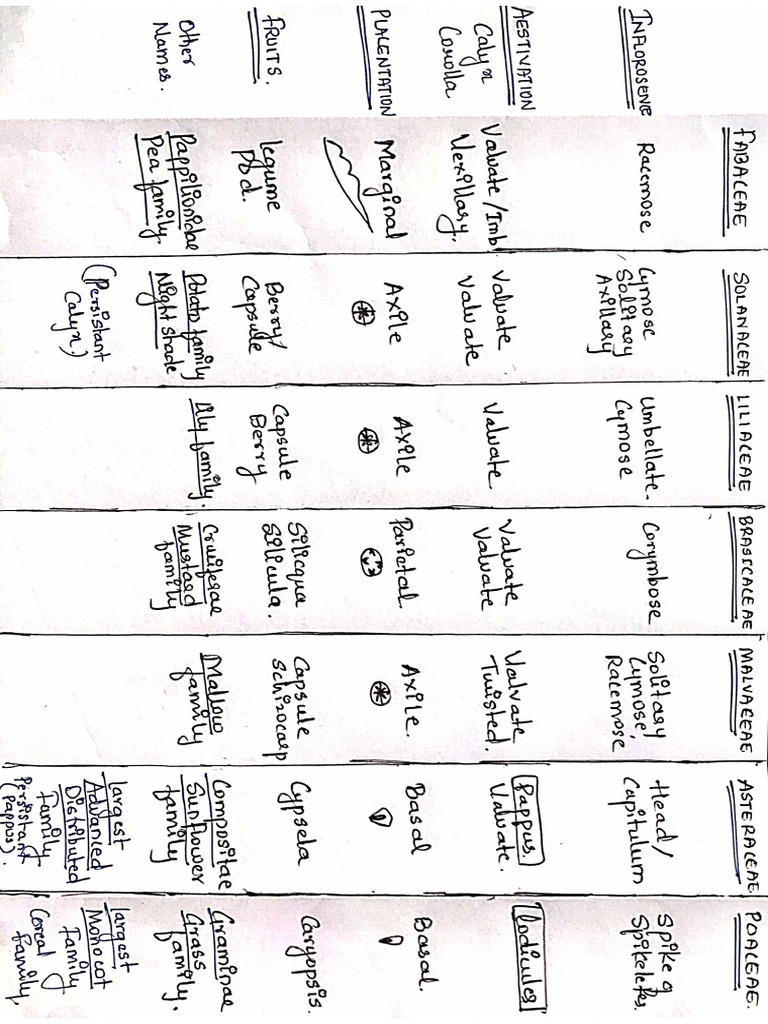 FABACEAE
SOLANACEAE
LILIACEAE
BRASICALEAE
MALVACEAE
ASTERACEAE
POACEAE.
INFLOROSENE
Racemose
Cymose
Solitary
Axillary
Umbellate.
Cymose
Corymbose
Solitary
Cymose,
Racemose
Head/
Capitulum
Spike of
Spikeletes.
AESTIVATION
Calyx
Corolla
Valvate/Imb.
Vexillary.
Valvate
Valvate
Valvate
Valvate
Valvate
Valvate
Twisted.
Pappus.
Valvate.
Lodicules
PLACENTATION
Marginal
Axile
Axile
Parietal
Axile.
Basal
Basal.
FRUITS.
legume
Pod.
Berry/
Capsule
Capsule
Berry
Silicqua
Silicula.
Capsule
Schizocarp
Cypsela
Caryopsis.
Other
Names.
Pappilionidae
Pea family.
Potato family
Night shade
(Persistant
Calyx)
Lily family.
Cruiferae
Mustard
family
Mallow
family
Compositae
Sunflower
family
largest
Advanced
Distributed
Family
Persistant
(Pappus).
Graminae
Grass
family.
largest
Monocot
Family
Cereal
family.